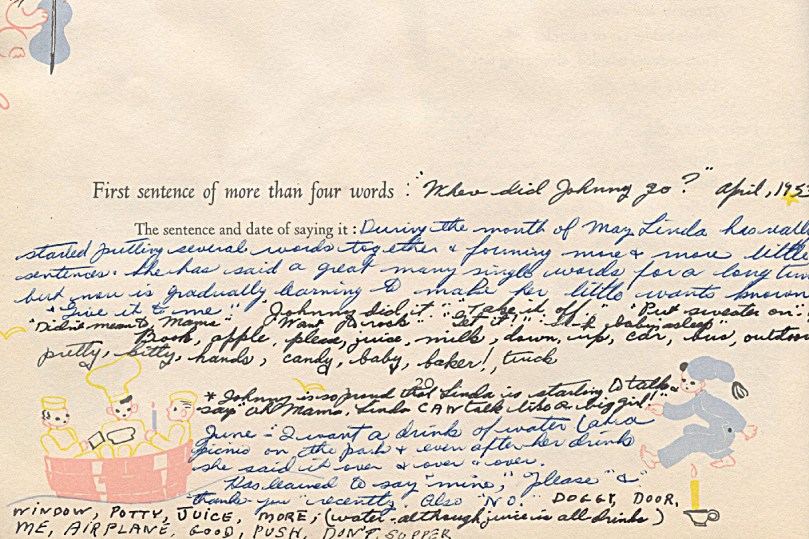 First sentence of more than four words : "Where did Johnny go?" April, 195
The sentence and date of saying it : During the month of May Linda has really
started putting several words together & forming more & more little
sentences. She has said a great many single words for a long time
but now is gradually learning to make her little wants known
"Give it to me." "Johnny did it." "Take it off." "Put sweater on."
"Didn't mean to Mama" "Want to rock" "Get it!" "Sh-h, baby asleep"
Book, apple, please, juice, milk, down, up, car, bus, outdoors
pretty, kitty, hands, candy, baby, baker!, truck
20
* Johnny is so proud that Linda is starting to talk &
say "oh Mama, Linda CAN talk like a big girl!"
June - "I want a drink of water"
picnic on the park & even after her drink
she said it over & over & over.
Has learned to say "mine," "Please" &
"thank-you" recently. Also "NO." DOGGY, DOOR,
WINDOW, POTTY, JUICE, MORE, (water - although juice is all drinks)
ME, AIRPLANE, GOOD, PUSH, DON'T, SUPPER